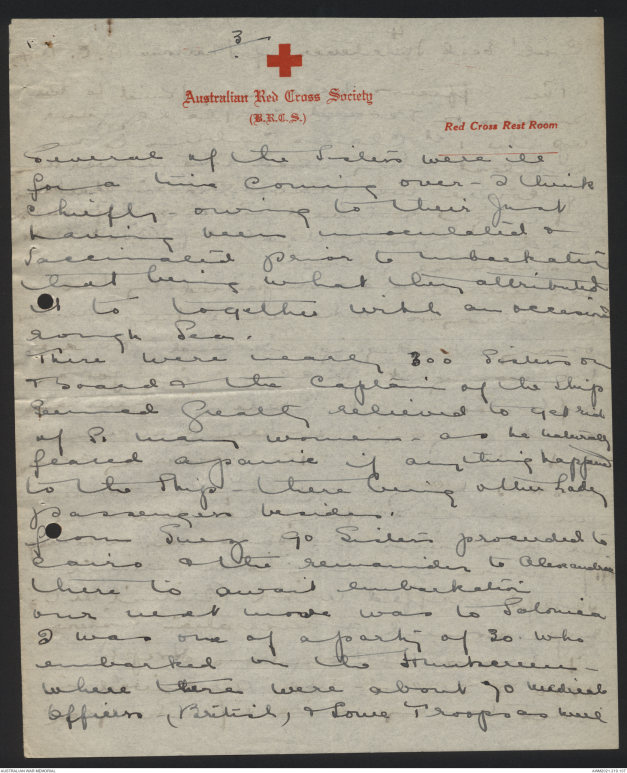 3
Australian Red Cross Society
(B.R.C.S.)
Red Cross Rest Room
Several of the Sisters were ill
for a time coming over - I think
chiefly - owing to their just
having been innoculated &
vaccinated prior to embarkation
that being what they attributed
it to together with an occasional
rough Sea.
There were nearly 300 Sisters on
Board & the Captain of the Ship
seemed greatly relieved to get rid
of so many women - as he naturally
feared a panic if anything happened
to the Ship there being other Lady
passengers besides.
From Suez 90 Sisters proceeded to
Cairo & the remainder to Alexandria
there to await embarkation
our next move was to Salonica
I was one of a party of 30 who
embarked on the
where there were about 70 medical
Officers (British) & Some Troops as well
AUSTRALIAN WAR MEMORIAL